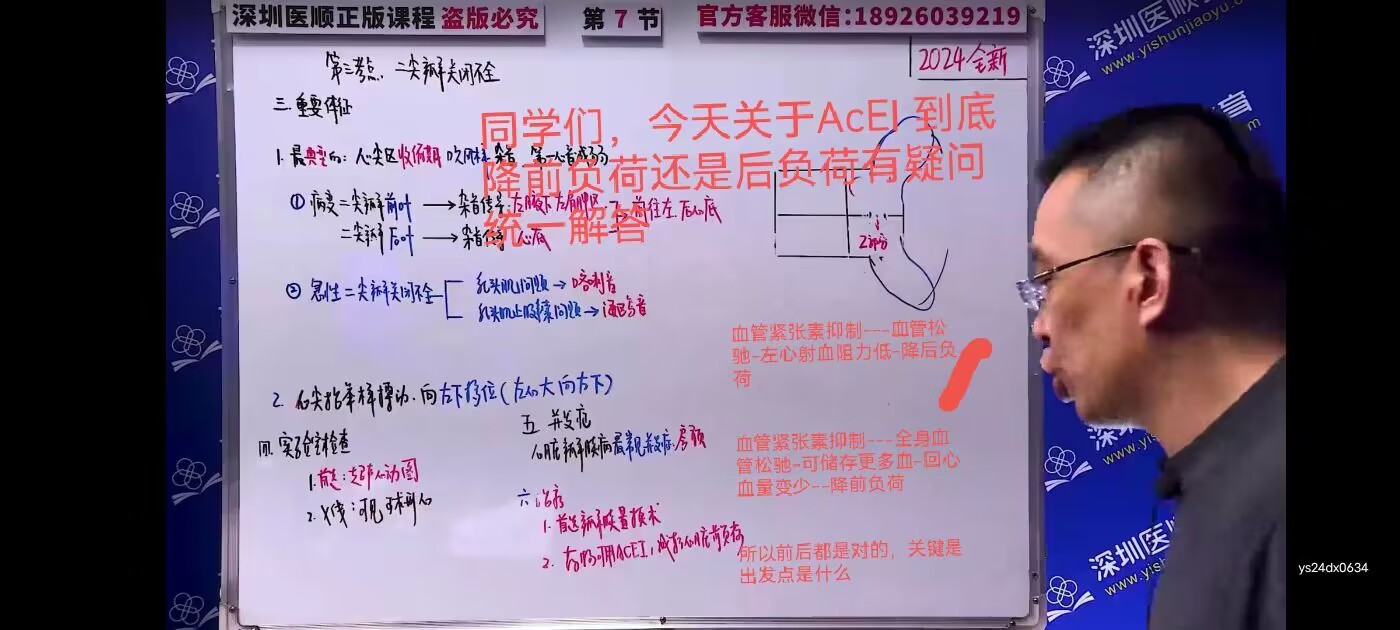 深圳医顺正版课程 盗版必究
第 7 节
官方客服微信:18926039219
2024全新
第三考点、二尖瓣关闭不全
三.重要体征
同学们，今天关于AcEI 到底
降前负荷还是后负荷有疑问
统一解答
1.最典型的:心尖区收缩期吹风样杂音 第一心音减弱
① 病变二尖瓣前叶 → 杂音传导:左腋下左肩胛区.
前往左.后心底
二尖瓣后叶 → 杂音传导 心底
② 急性二尖瓣关闭不全
乳头肌问题→喀喇音
乳头肌止腱索问题→海鸥音
血管紧张素抑制---血管松
驰-左心射血阻力低-降后负
荷
2. 心尖抬举样搏动.向左下移位(左心大向左下)
四.实验室检查
1.首选:超声心动图
2.X线:可见
五 并发症
心脏瓣膜病最常见并发症:房颤
六.治疗
1.首选瓣膜置换术
2. 药物可用ACEI,减轻心脏前负荷
血管紧张素抑制---全身血
管松驰-可储存更多血-回心
血量变少--降前负荷
所以前后都是对的，关键是
出发点是什么
深圳医顺
www.yishunjiaoyu.c
ys24dx0634